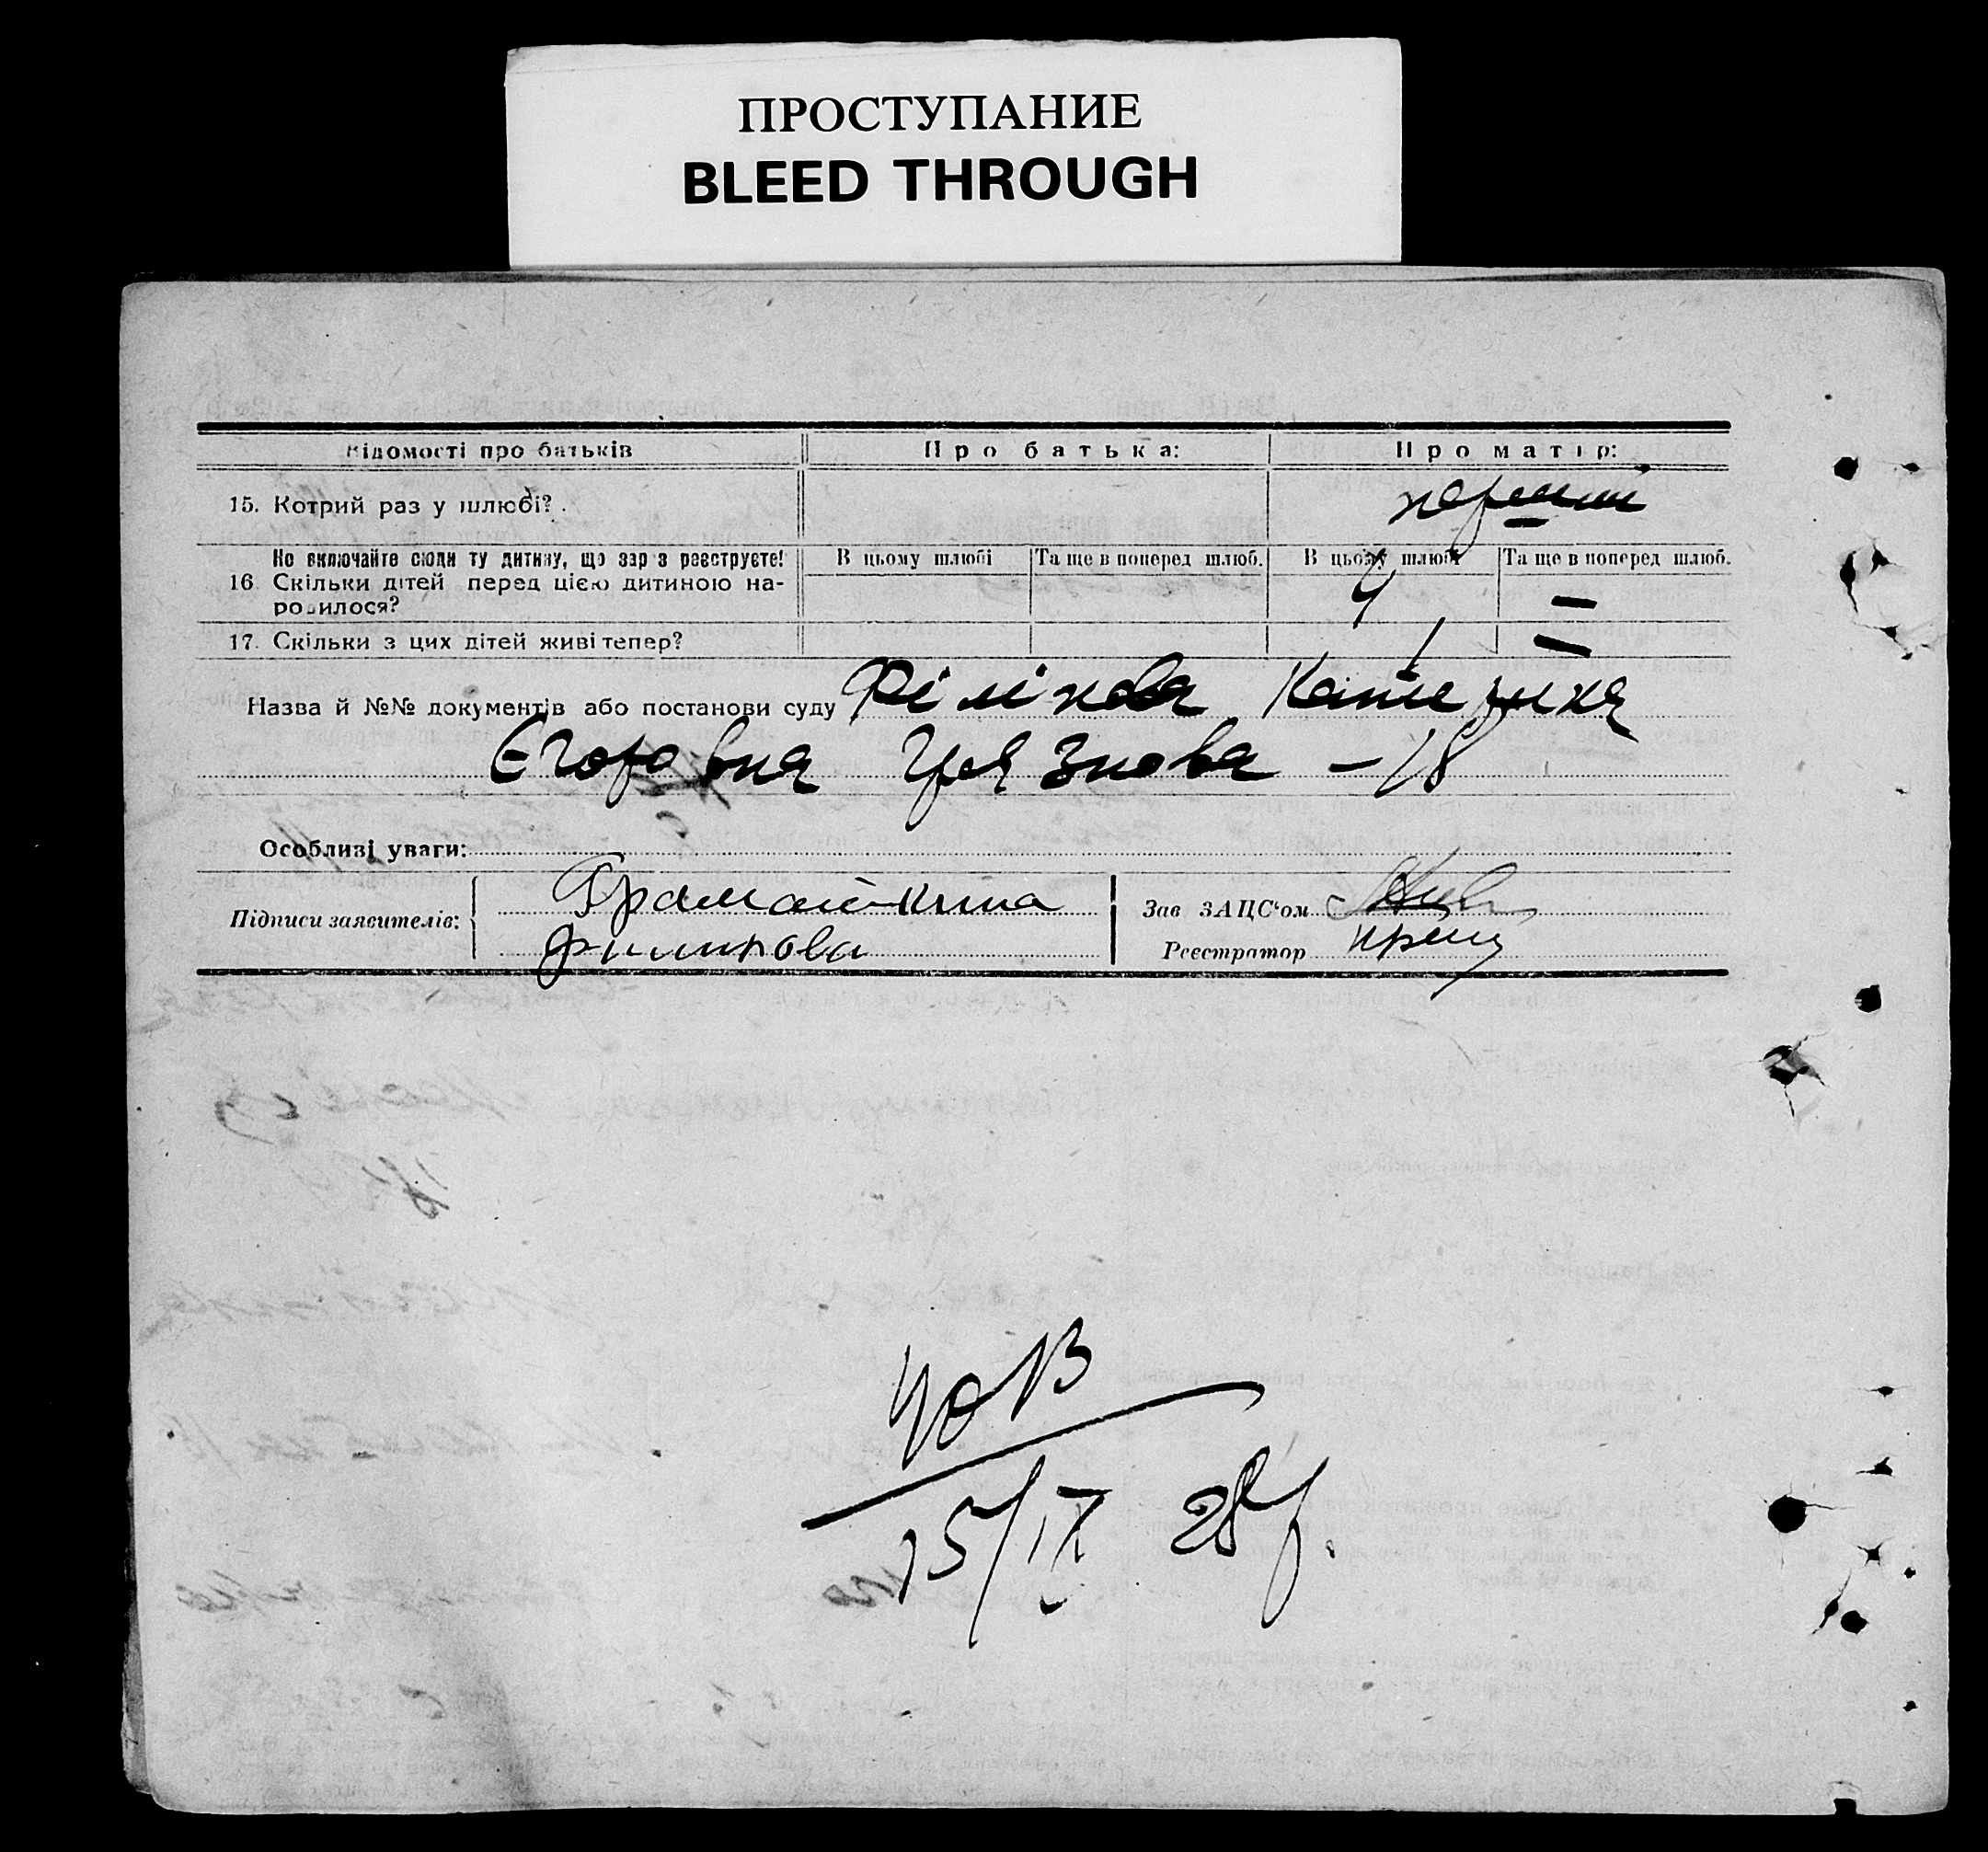 ПРОСТУПАНИЕ
BLEED THROUGH
Відомості про батьків Про батька: Про матір:
15. Котрий раз у шлюбі? перший
Не включайте сюди ту дитину, що зараз реєструєте! В цьому шлюбі Та ще в поперед шлюб. В цьому шлюбі Та ще в поперед шлюб.
16 Скільки дітей перед цією дитиною на- 4 —
родилося?
17. Скільки з цих дітей живі тепер? 1 —
Назва й №№ документів або постанови суду Філінова Катерина
Єгоровна Грязнова – 18
Особливі уваги:
Підписи заявителів: Зав ЗАЦС'ом
Филинова Реєстратор
15/IX 28 р.